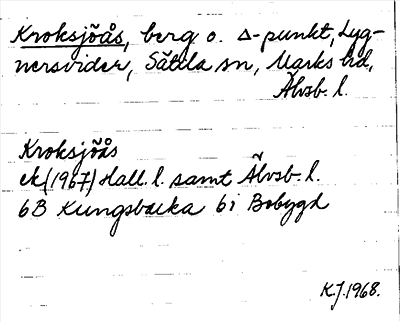 Kroksjöås, berg o. Δ-punkt, Lyg-
nersvider, Sätila sn, Marks hd,
Älvsb. l.
Kroksjöås
ek (1967) Hall. l. samt Älvsb. l.
6B Kungsbacka 6i Bobygd
K.J. 1968.